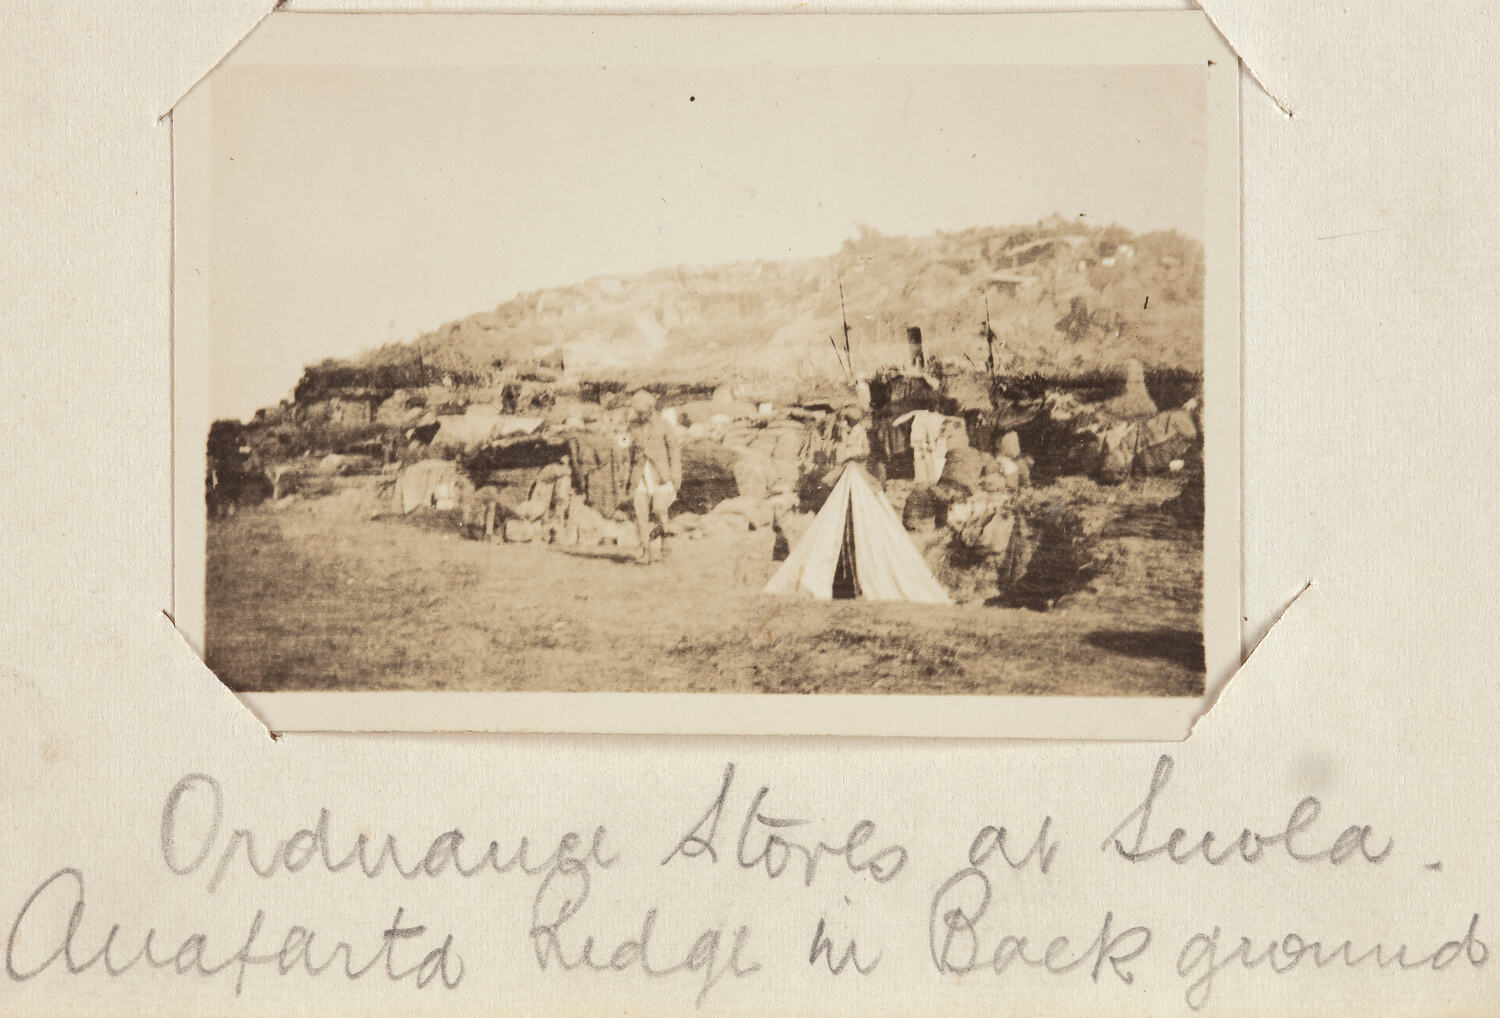 Ordnance Stores at Suvla.
Anafarta Ridge in Back ground